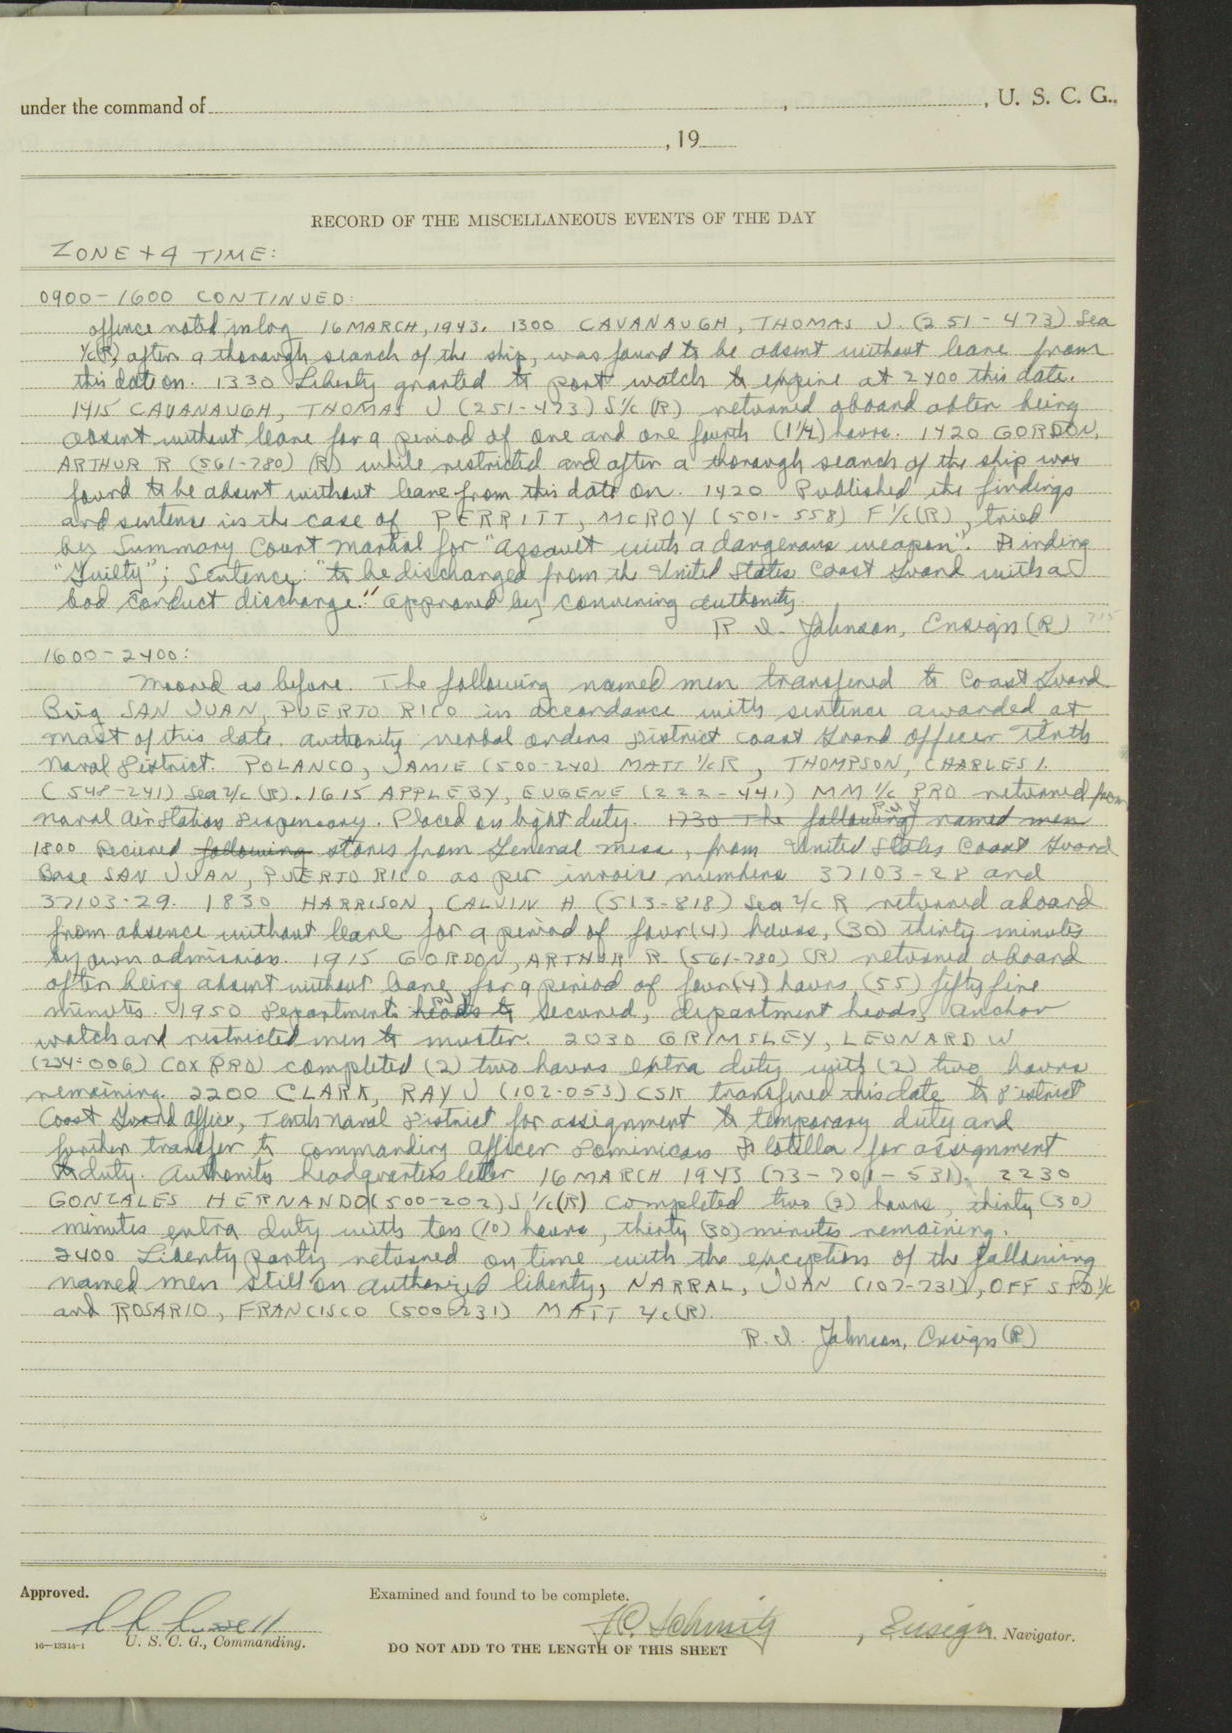 under the command of , , U. S. C. G.,
, 19
RECORD OF THE MISCELLANEOUS EVENTS OF THE DAY
ZONE +4 TIME:
0900-1600 CONTINUED:
offence noted in log 16 MARCH, 1943. 1300 CAVANAUGH, THOMAS J. (251-473) Sea
1/c(R) after a thorough search of the ship, was found to be absent without leave from
this date on. 1330 Liberty granted to port watch to expire at 2400 this date.
1415 CAVANAUGH, THOMAS J (251-473) S1/c (R) returned aboard after being
absent without leave for a period of one and one fourth (1 1/4) hours. 1420 GORDON,
ARTHUR R (561-780) (R) while restricted and after a thorough search of the ship was
found to be absent without leave from this date on. 1420 Published the findings
and sentence in the case of PERRITT, McROY (501-558) F 1/c(R), tried
by Summary Court Martial for "assault with a dangerous weapon". Finding
"Guilty"; Sentence: "to be discharged from the United States Coast Guard with a
bad conduct discharge." approved by convening authority.
R. I. Johnson, Ensign (R)
1600-2400:
Moored as before. The following named men transfered to Coast Guard
Brig SAN JUAN, PUERTO RICO in accordance with sentence awarded at
mast of this date. authority verbal orders District Coast Guard Officer Tenth
Naval District. POLANCO, JAMIE (500-240) MATT 1/c R, THOMPSON, CHARLES I.
(548-241) Sea 2/c (R). 1615 APPLEBY, EUGENE (222-441) MM 1/c PRO returned from
naval air Station Dispensary. Placed on light duty. 1730 The following named men
1800 Recieved following stores from General mess, from United States Coast Guard
Base SAN JUAN, PUERTO RICO as per invoice numbers 37103-28 and
37103-29. 1830 HARRISON, CALVIN H (513-818) Sea 2/c R returned aboard
from absence without leave for a period of four (4) hours, (30) thirty minutes
by own admission. 1915 GORDON, ARTHUR R (561-780) (R) returned aboard
after being absent without leave for a period of four (4) hours (55) fifty five
minutes. 1950 Departments heads to secured, department heads, anchor
watch and restricted men to muster. 2030 GRIMSLEY, LEONARD W
(234-006) COX PRO) completed (2) two hours extra duty with (2) two hours
remaining. 2200 CLARK, RAY J (102-053) CSK transfered this date to District
Coast Guard Officer, Tenth Naval District for assignment to temporary duty and
further transfer to commanding officer Dominican Flotilla for assignment
to duty. Authority headquarters letter 16 MARCH 1943 (73-701-531). 2230
GONZALES HERNANDO (500-202) S 1/c (R) completed two (2) hours, thirty (30)
minutes extra duty with ten (10) hours, thirty (30) minutes remaining.
2400 Liberty party returned on time with the exception of the following
named men still on authorized liberty; NARRAL, JUAN (107-731), OFF STD 1/c
and ROSARIO, FRANCISCO (500-231) MATT 2/c (R).
R. I. Johnson, Ensign (R)
Approved. Examined and found to be complete.
J.C. Schmitz, Ensign. Navigator.
16-13314-1 U. S. C. G., Commanding.
DO NOT ADD TO THE LENGTH OF THIS SHEET